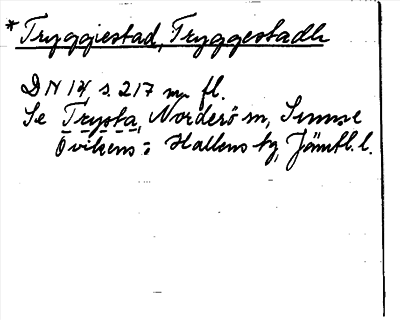 * Tryggiestad, Tryggestadh
DN 14, s. 217 m. fl.
Se Trysta, Norderö sn, Sunne
Ovikens o Hallens tg, Jämtl. l.